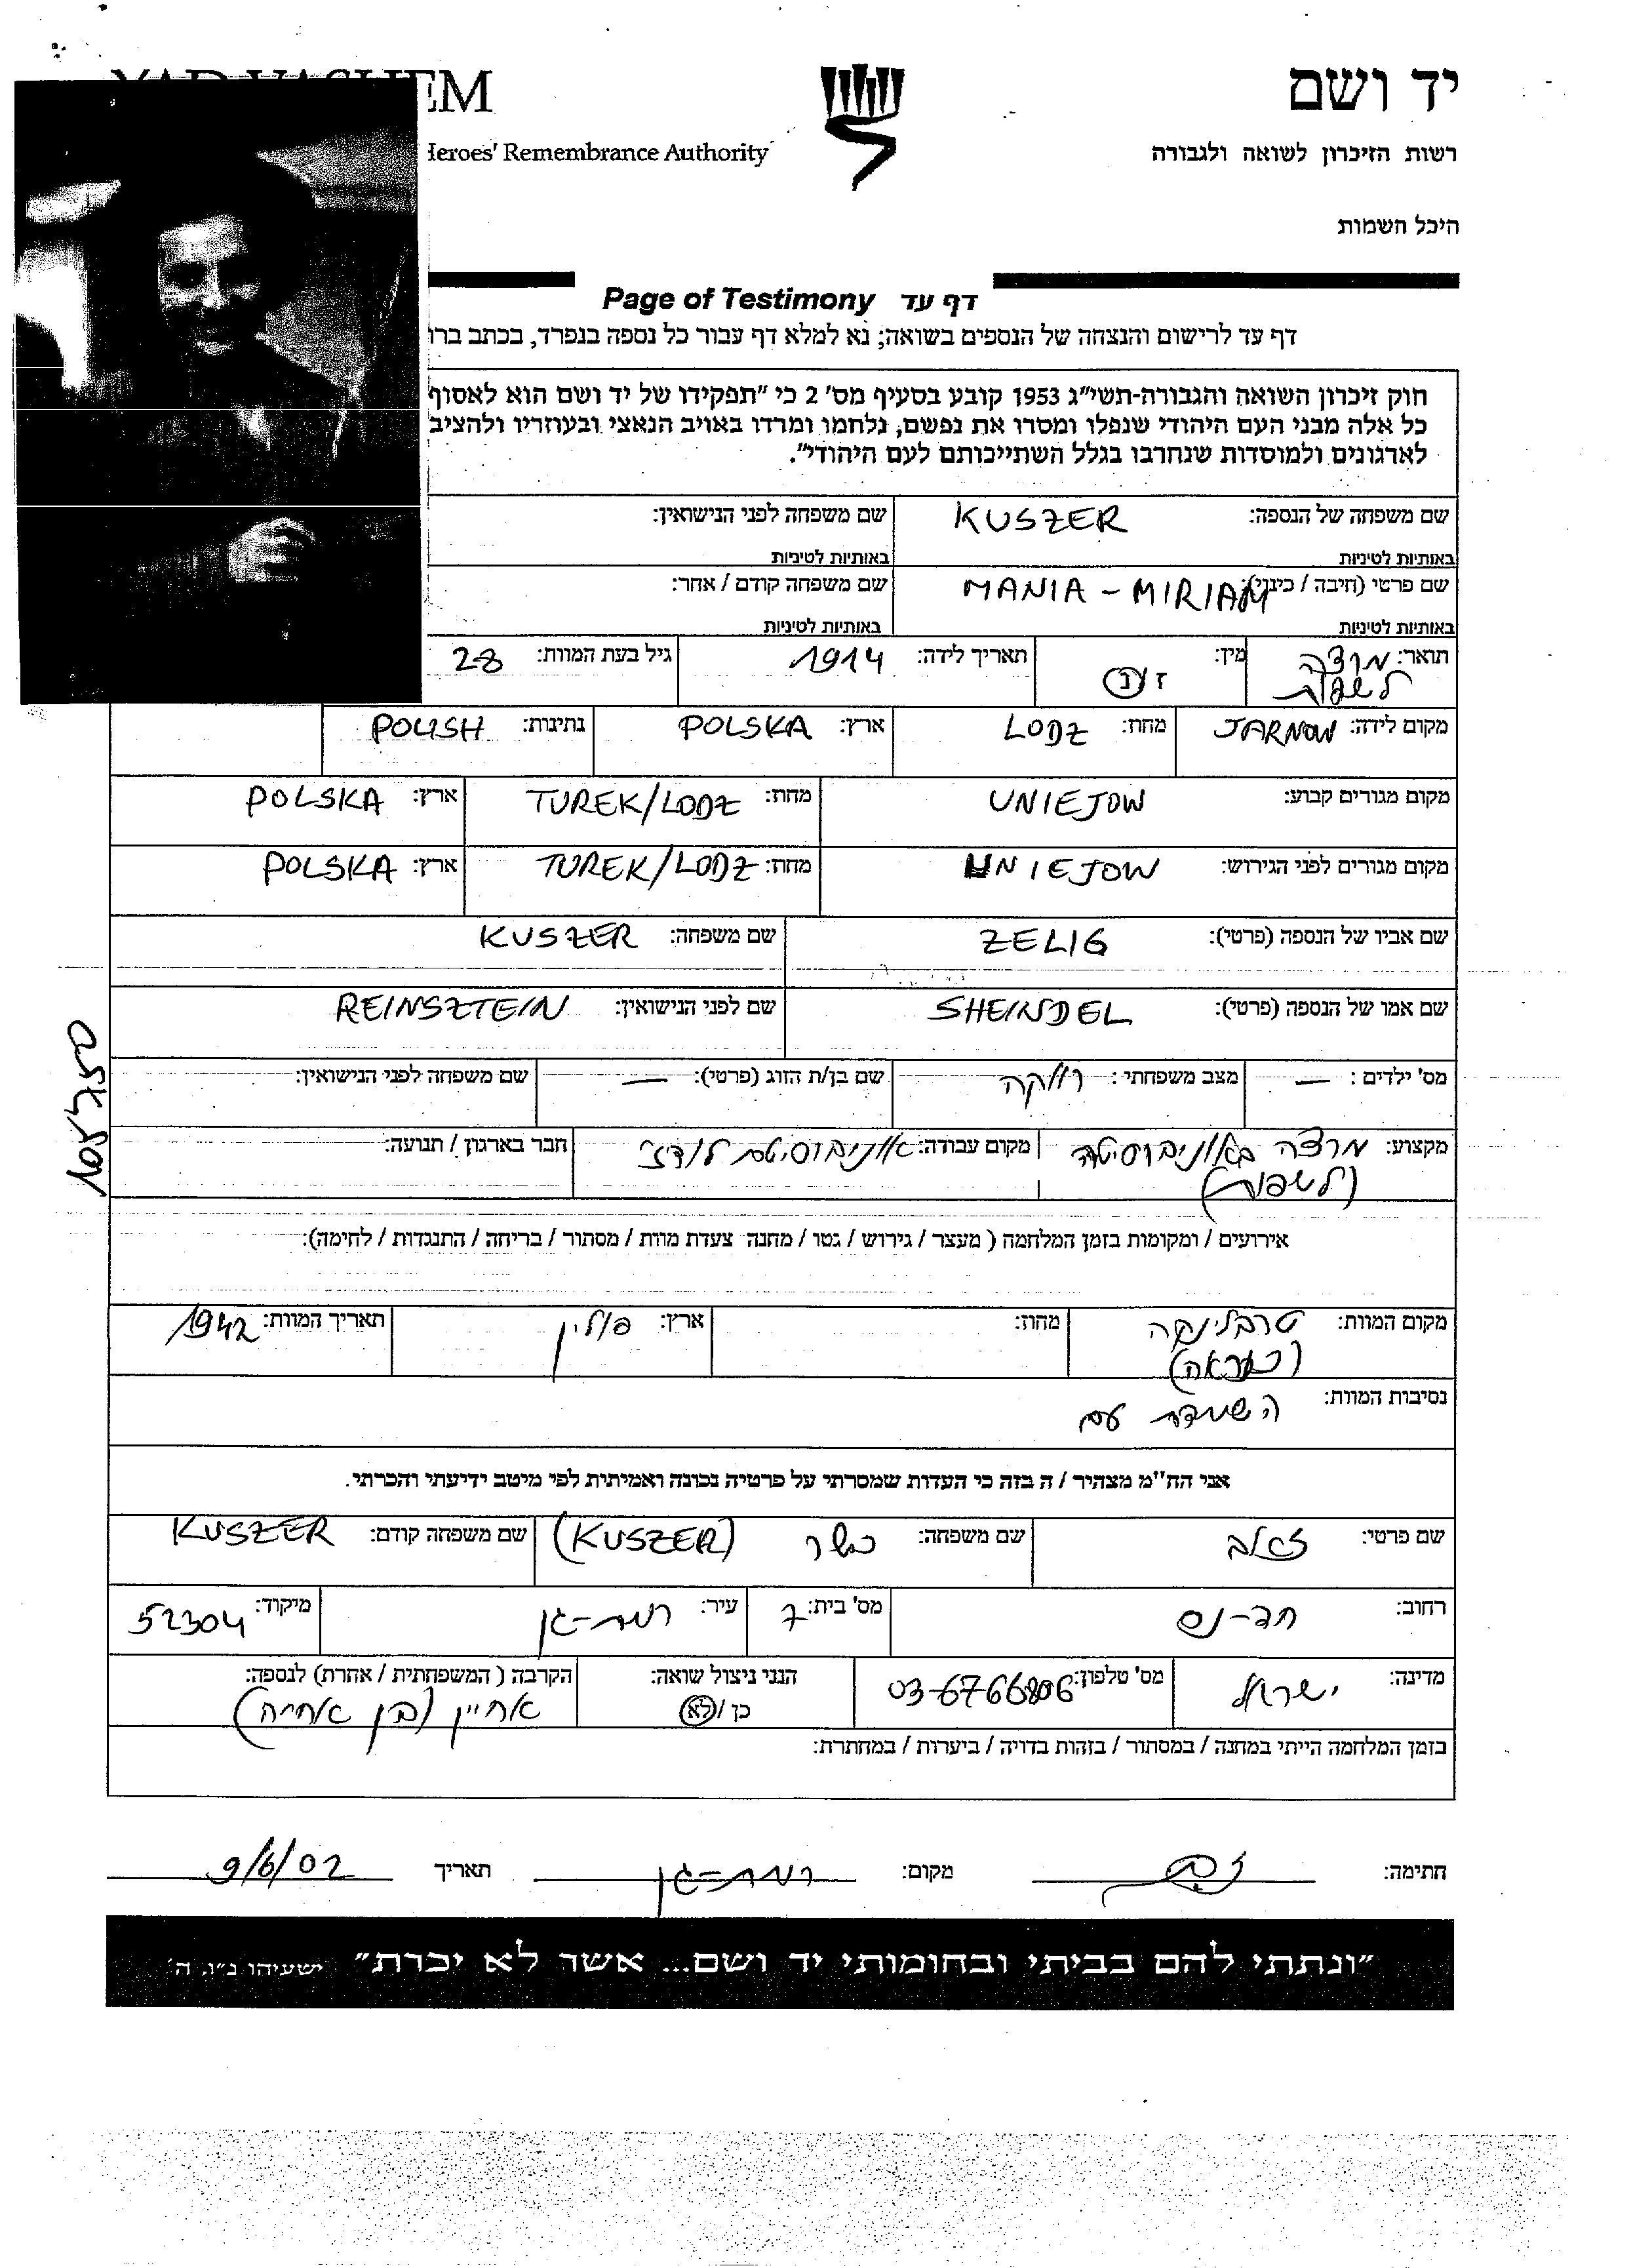 EM יד ושם
Heroes' Remembrance Authority רשות הזיכרון לשואה ולגבורה
היכל השמות
Page of Testimony דף עד
דף עד לרישום והנצחה של הנספים בשואה; נא למלא דף עבור כל נספה בנפרד, בכתב ברו
חוק זיכרון השואה והגבורה-תשי"ג 1953 קובע בסעיף מס' 2 כי "תפקידו של יד ושם הוא לאסוף
כל אלה מבני העם היהודי שנפלו ומסרו את נפשם, נלחמו ומרדו באויב הנאצי ובעוזריו ולהציב
לארגונים ולמוסדות שנחרבו בגלל השתייכותם לעם היהודי".
שם משפחה של הנספה: KUSZER שם משפחה לפני הנישואין:
באותיות לטיניות באותיות לטיניות
שם פרטי (חיבה / כינוי): MANIA - MIRIAM שם משפחה קודם / אחר:
באותיות לטיניות באותיות לטיניות
תואר: מרצה מין: ז / נ תאריך לידה: 1914 גיל בעת המוות: 28
לשפות
מקום לידה: JARNOW מחוז: LODZ ארץ: POLSKA נתינות: POLISH
מקום מגורים קבוע: UNIEJOW מחוז: TUREK/LODZ ארץ: POLSKA
מקום מגורים לפני הגירוש: UNIEJOW מחוז: TUREK/LODZ ארץ: POLSKA
שם אביו של הנספה (פרטי): ZELIG שם משפחה: KUSZER
שם אמו של הנספה (פרטי): SHEINDEL שם לפני הנישואין: REINSZTEIN
מס' ילדים: — מצב משפחתי: רווקה שם בן/ת הזוג (פרטי): — שם משפחה לפני הנישואין:
מקצוע: מרצה באוניברסיטה מקום עבודה: אוניברסיטת לודז' חבר בארגון / תנועה:
(לשפות)
אירועים / ומקומות בזמן המלחמה ( מעצר / גירוש / גטו / מחנה צעדת מוות / מסתור / בריחה / התנגדות / לחימה):
מקום המוות: טרבלינקה מחוז: ארץ: פולין תאריך המוות: 1942
(כנראה)
נסיבות המוות: השמדת עם
אני הח"מ מצהיר / ה בזה כי העדות שמסרתי על פרטיה נכונה ואמיתית לפי מיטב ידיעתי והכרתי.
שם פרטי: זאב שם משפחה: כשר (KUSZER) שם משפחה קודם: KUSZER
רחוב: חד-נס מס' בית: 7 עיר: רמת-גן מיקוד: 52304
מדינה: ישראל מס' טלפון: 03-6766806 הנני ניצול שואה: כן / לא הקרבה ( המשפחתית / אחרת) לנספה:
אחיין (בן אחיה)
בזמן המלחמה הייתי במחנה / במסתור / בזהות בדויה / ביערות / במחתרת:
חתימה: מקום: רמת-גן תאריך 9/6/02
"ונתתי להם בביתי ובחומותי יד ושם... אשר לא יכרת" ישעיהו נ"ו, ה'